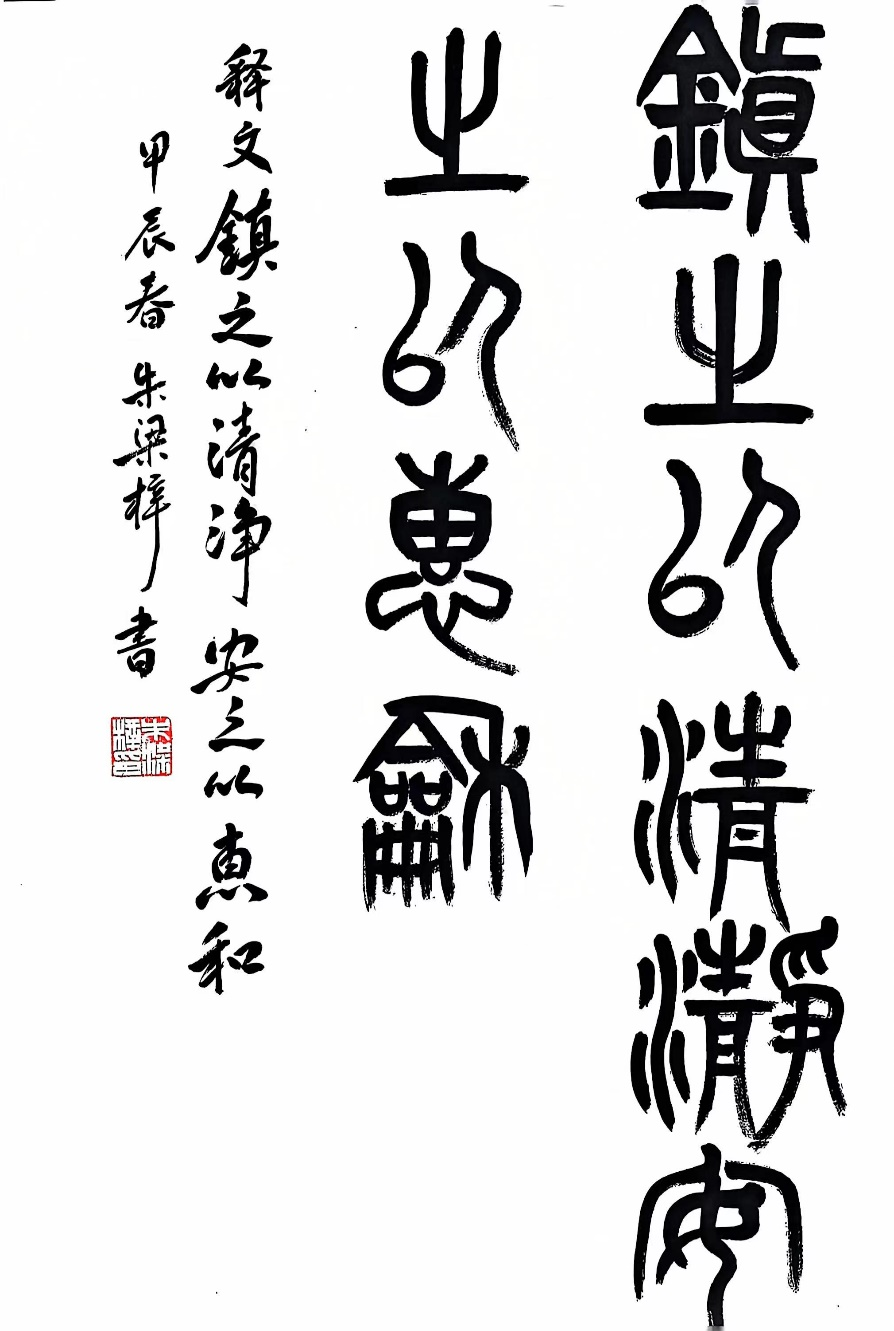 鎮之以清瀞安
之以惠龢
释文鎮之以清浄安之以惠和
甲辰春朱梁梓書